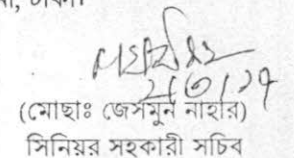 , ঢাকা।
২/৩/২৭
(মোছাঃ জেসমুন নাহার)
সিনিয়র সহকারী সচিব